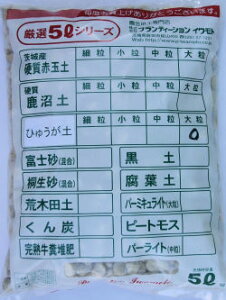 毎度お買上げありがとうございます。
厳選5ℓシリーズ
プランティーション イワモト
細粒 小粒 中粒 大粒
茨城産
硬質赤玉土
硬質
鹿沼土
大粒
ひゅうが土
富士砂(混合)
黒土
桐生砂(混合)
腐葉土
荒木田土
バーミキュライト(大粒)
くん炭
ピートモス
完熟牛糞堆肥
パーライト(中粒)
5ℓ